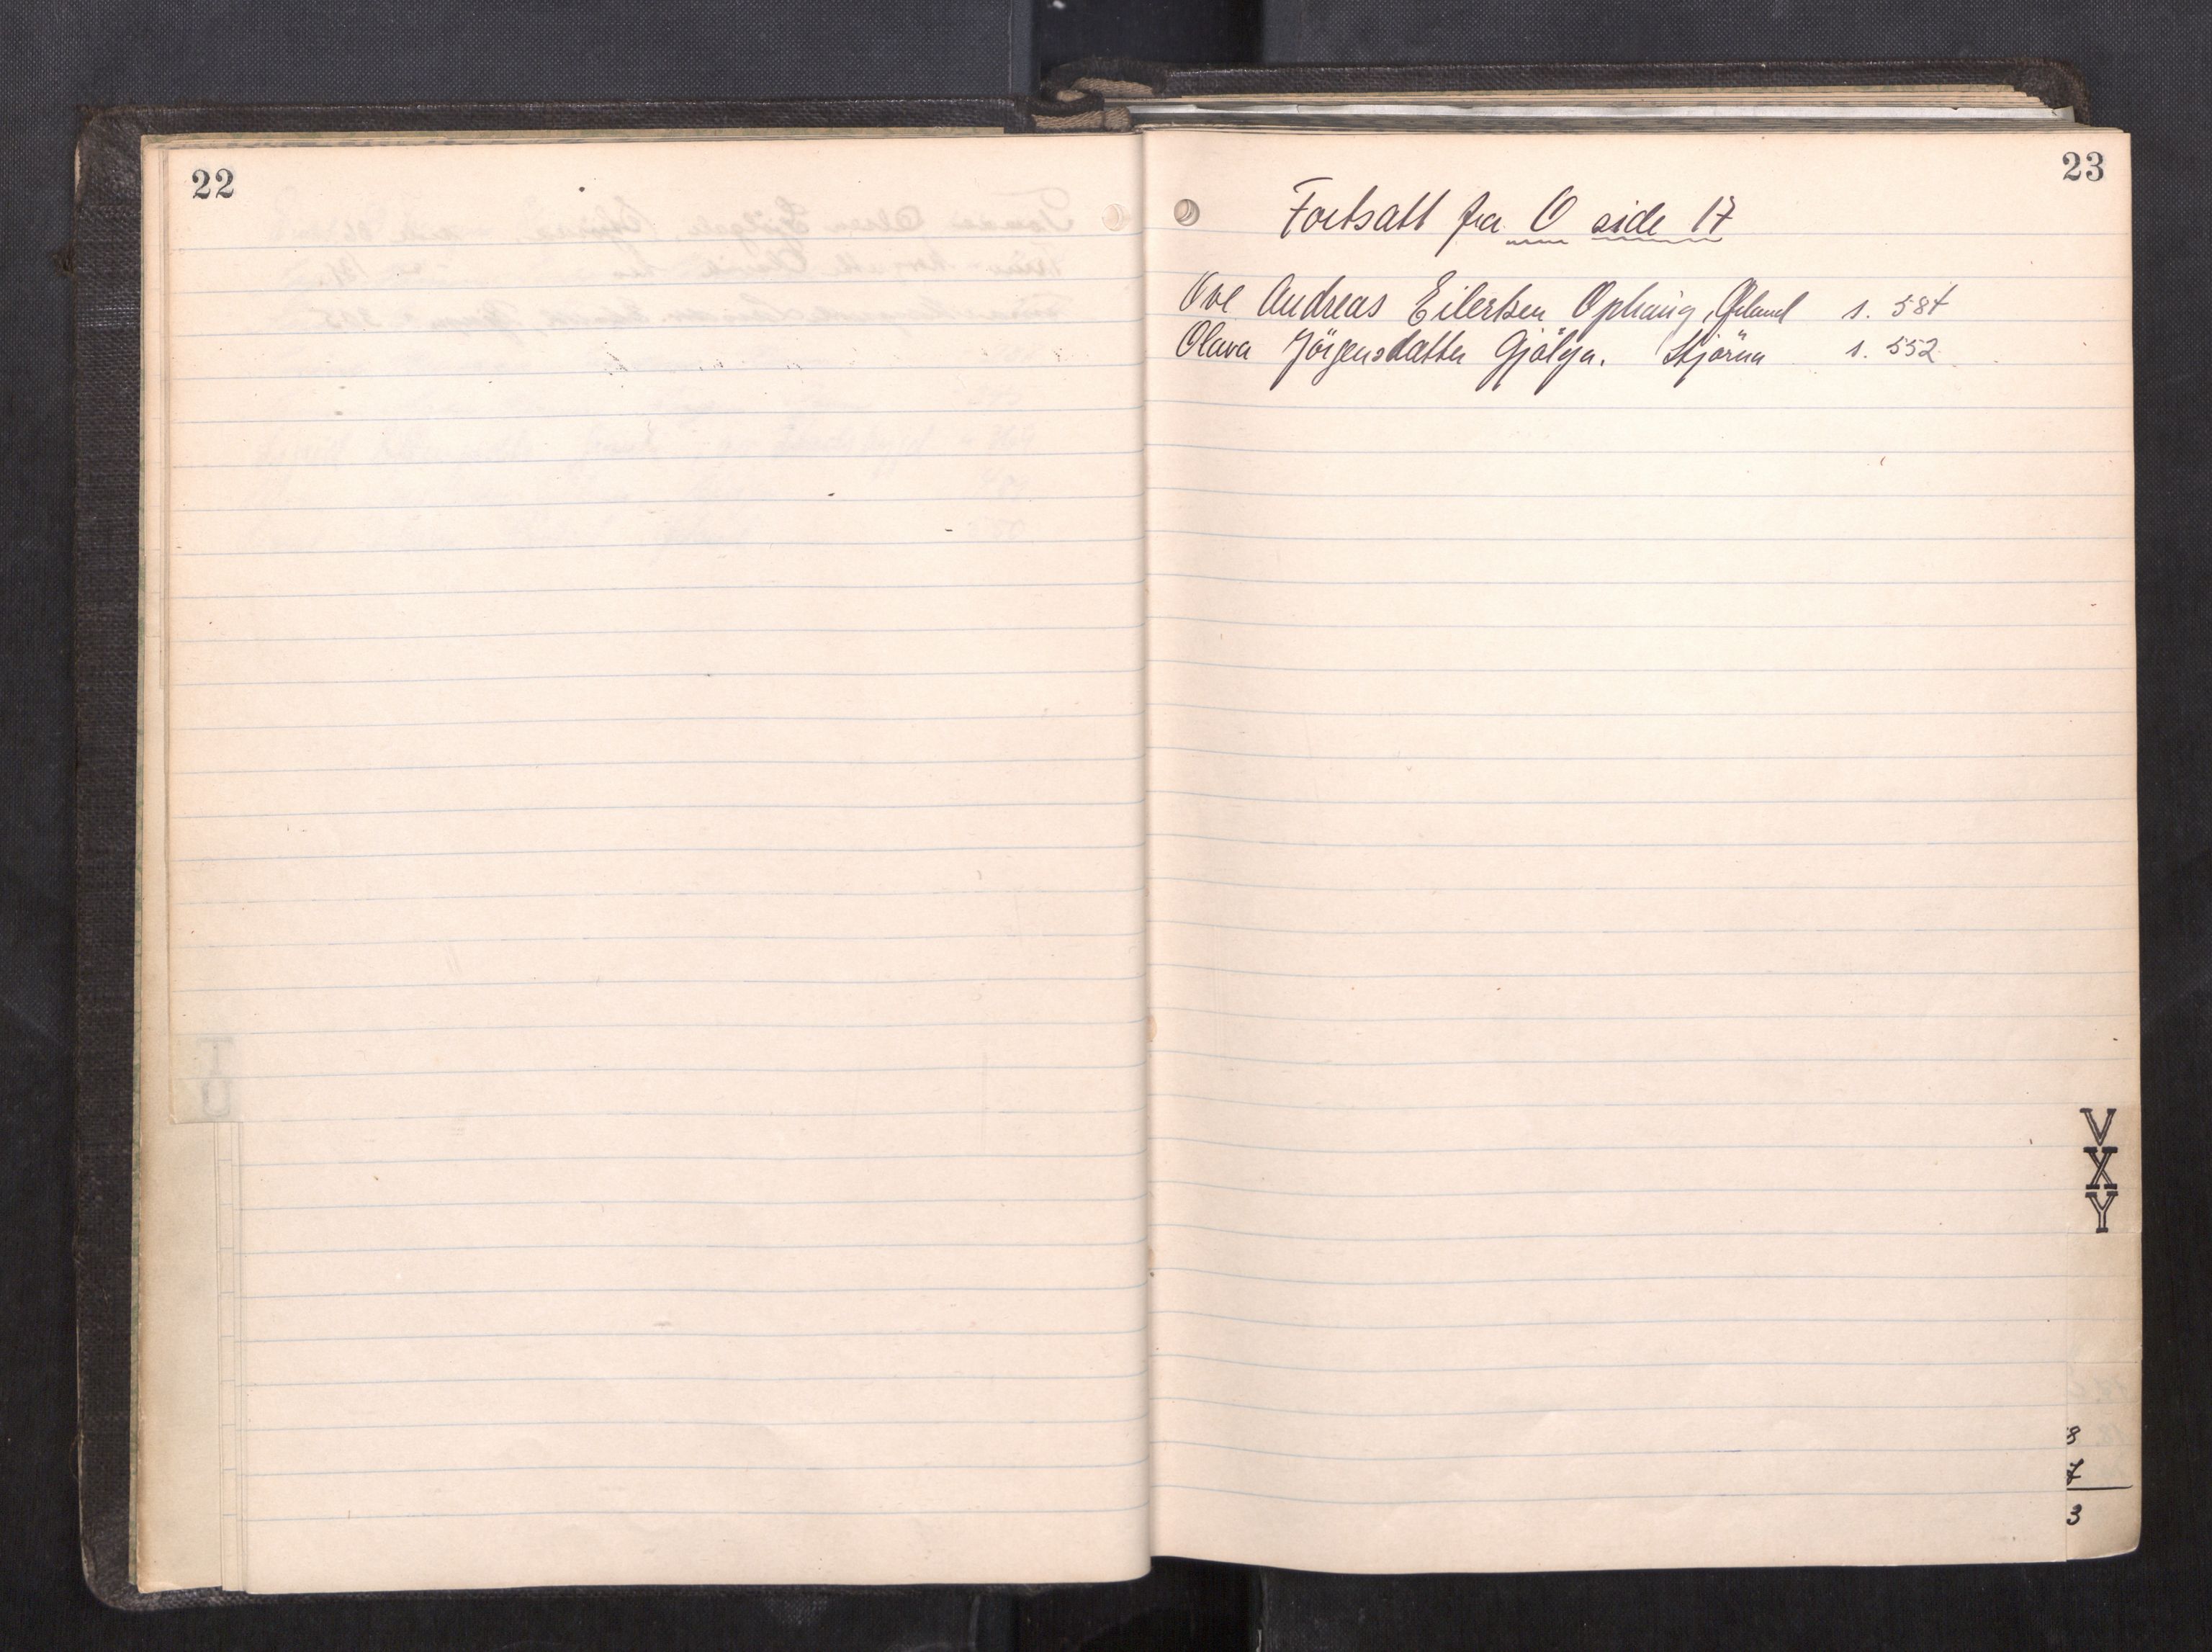 22
23
Fortsatt fra O side 17
Ove Andreas Eilertsen Ophaug, Ørland s. 584
Olava Jörgensdatter Gjölga. Stjörna s. 552
T
U
V
X
Y
8
7
3